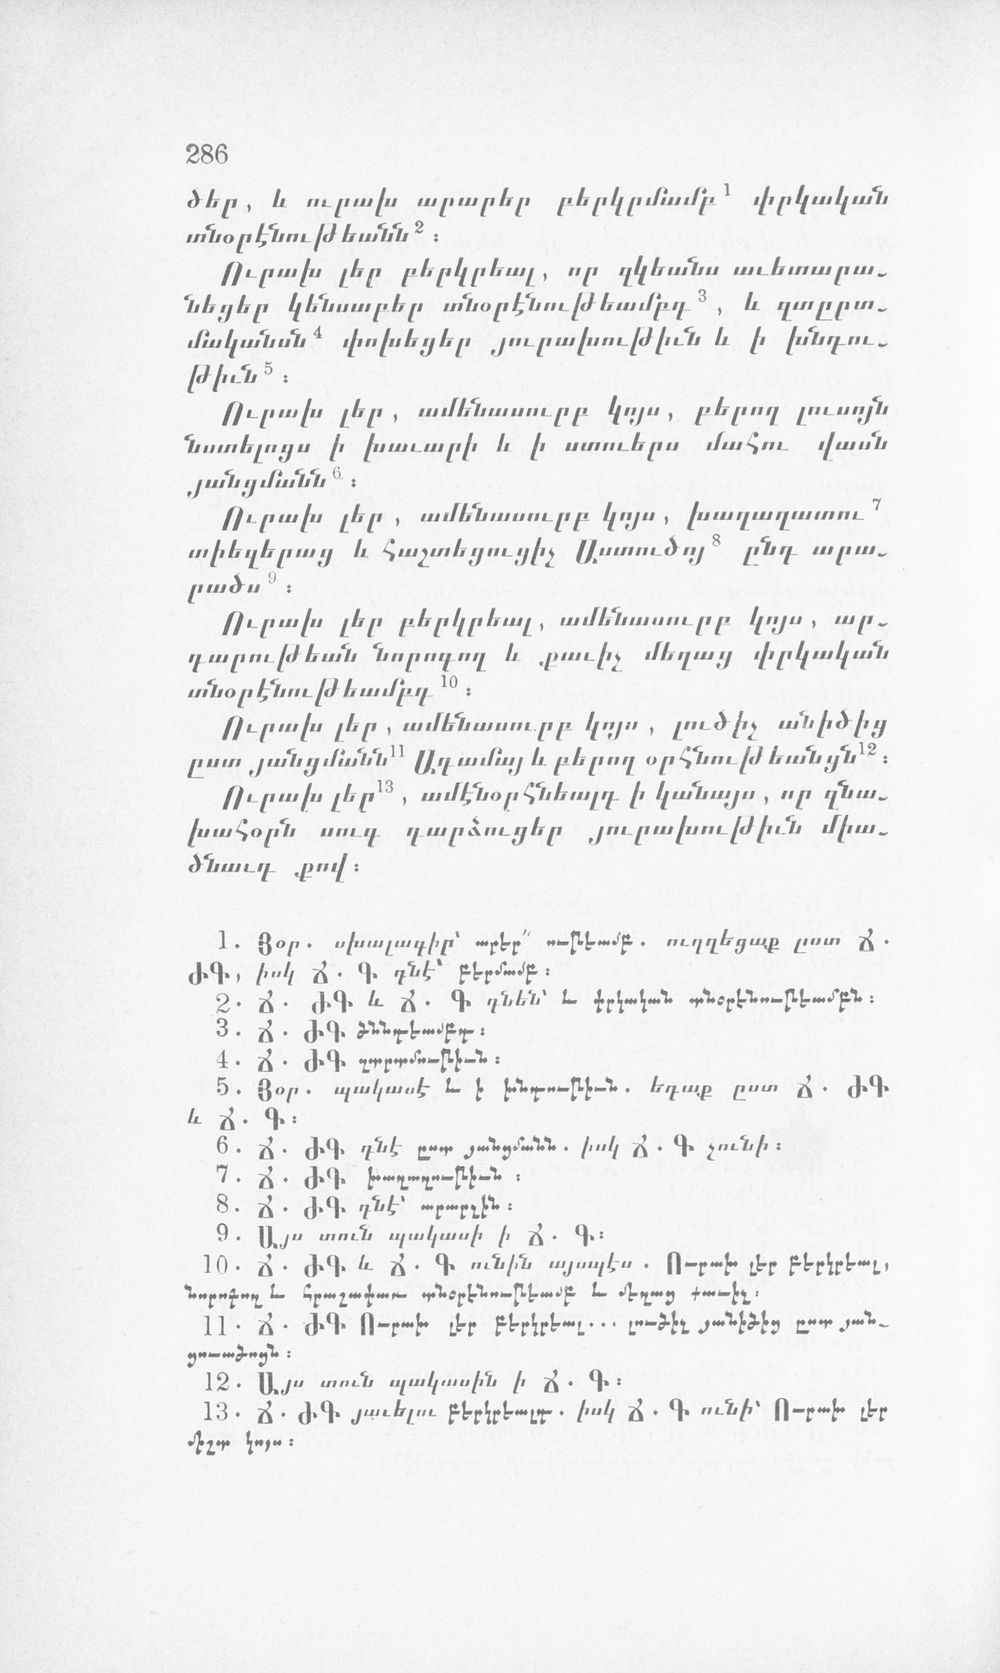 286
ծեր, և ուրախ արարեր բերկրմամբ¹ փրկական
տնօրէնութեանն²։
Ուրախ լեր բերկրեալ, որ զկեանս աւետարա֊
նեցեր կենսաբեր տնօրէնութեամբդ³, և զտըրտ֊
մականսն⁴ փոխեցեր յուրախութիւն և ի խնդու֊
թիւն⁵։
Ուրախ լեր, ամենասուրբ կոյս, բերող լուսոյն
նստելոցս ի խաւարի և ի ստուերս մահու վասն
յանցմանն⁶։
Ուրախ լեր, ամենասուրբ կոյս, խաղաղատու⁷
տիեզերաց և հաշտեցուցիչ Աստուծոյ⁸ ընդ արա֊
րածս⁹։
Ուրախ լեր բերկրեալ, ամենասուրբ կոյս, ար֊
դարութեան նորոգող և քաւիչ մեղաց փրկական
տնօրէնութեամբդ¹⁰։
Ուրախ լեր, ամենասուրբ կոյս, լուծիչ անիծից
ըստ յանցմանն¹¹ Ադամայ և բերող օրհնութեանցն¹²։
Ուրախ լեր¹³, ամէնօրհնեալդ ի կանայս, որ զնա֊
խահօրն սուգ դարձուցեր յուրախութիւն միա֊
ծնաւդ քով։
1. Յօր. սխալագիր՝ արեր՞ ութեամբ. ուղղեցաք ըստ Ճ.
ԺԳ, իսկ Ճ. Գ դնէ՝ բերմամբ։
2. Ճ. ԺԳ և Ճ. Գ դնեն՝ և փրկական տնօրէնութեամբն։
3. Ճ. ԺԳ ծննդեամբդ։
4. Ճ. ԺԳ զտրտմութիւն։
5. Յօր. պակասէ և ի խնդութիւն. եդաք ըստ Ճ. ԺԳ
և Ճ. Գ։
6. Ճ. ԺԳ դնէ ըստ յանցմանն. իսկ Ճ. Գ չունի։
7. Ճ. ԺԳ խաղաղութիւն։
8. Ճ. ԺԳ դնէ՝ արարչին։
9. Այս տուն պակասի ի Ճ. Գ։
10. Ճ. ԺԳ և Ճ. Գ ունին այսպէս. Ուրախ լեր բերկրեալ,
նորոգող և հրաշափառ տնօրէնութեամբ և մեղաց քաւիչ։
11. Ճ. ԺԳ Ուրախ լեր բերկրեալ... լուծիչ յանիծից ըստ յան֊
ցուածոցն։
12. Այս տուն պակասին ի Ճ. Գ։
13. Ճ. ԺԳ յաւելու բերկրեալդ. իսկ Ճ. Գ ունի՝ Ուրախ լեր
միշտ կոյս։